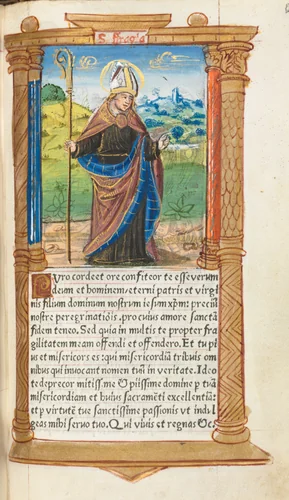 S. Fragia
Puro corde et ore confiteor te esse verum
deum et hominem, eterni patris et virgi
nis filium dominum nostrum iesum xp̄m: preciū
nostre peregrinatiōis, pro cuius amore sanctā
fidem teneo. Sed quia in multis te propter fra
gilitatem meam offendi et offendero. Et tu pi
us et misericors es: qui misericordiā tribuis om
nibus qui invocant nomen tuū in veritate. Ideo
te deprecor mitissime O piissime domine p tuā
misericordiam et huius sacramēti excellentiā:
et p virtutē tue sanctissime passionis vt indul
geas mihi servo tuo. Qui vivis et regnas